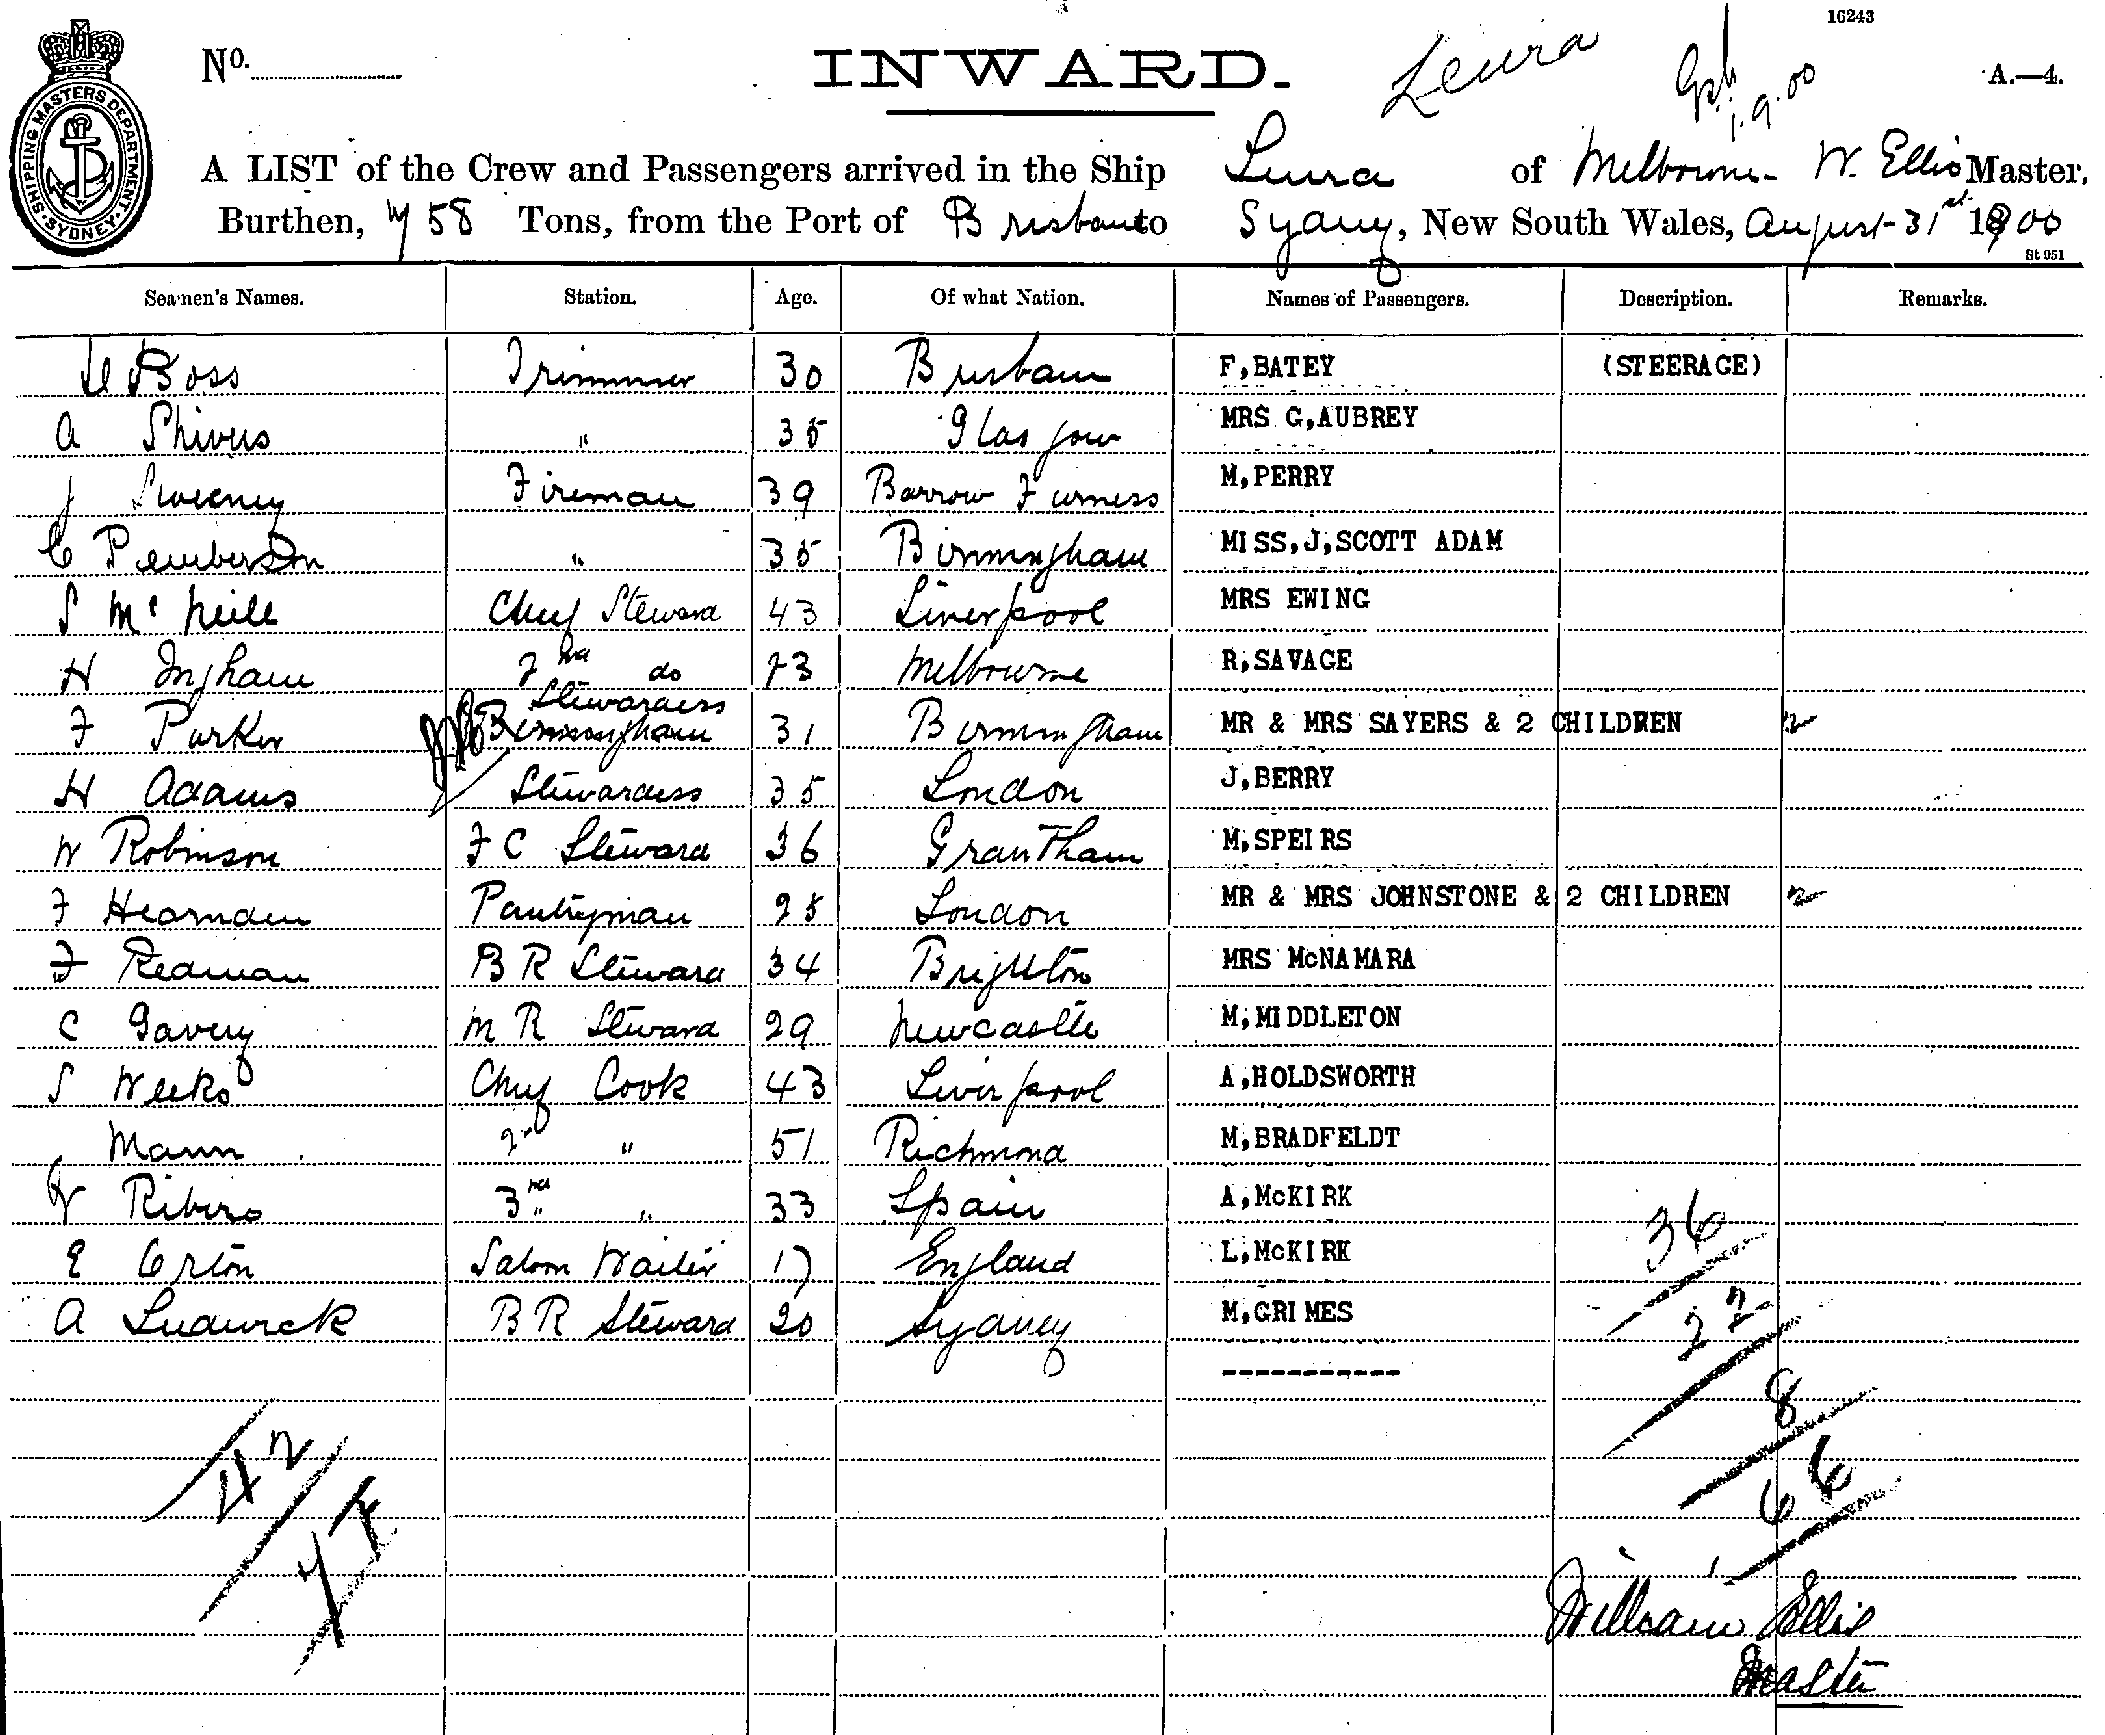 16243
No.
INWARD.
Leura
1.9.00
A.—4.
SHIPPING MASTERS DEPARTMENT. SYDNEY
A LIST of the Crew and Passengers arrived in the Ship Leura of Melbourne W. Ellis Master,
Burthen, Tons, from the Port of Brisbane to Sydney, New South Wales, August 31st 1900
St 951
Seamen's Names. Station. Age. Of what Nation. Names of Passengers. Description. Remarks.
Boss Trimmer 30 Brisbane F,BATEY (STEERAGE)
A Shivers " 35 Glasgow MRS G,AUBREY
J Sweeney Fireman 39 Barrow Furness M,PERRY
C Pemberton " 35 Birmingham MISS,J,SCOTT ADAM
S McNeill Chief Steward 43 Liverpool MRS EWING
H Ingham 2nd do 23 Melbourne R,SAVAGE
Stewardess
F Parker Birmingham 31 Birmingham MR & MRS SAYERS & 2 CHILDREN 2
H Adams Stewardess 35 London J,BERRY
W Robinson F C Steward 36 Grantham M,SPEIRS
F Hearnden Pantryman 25 London MR & MRS JOHNSTONE & 2 CHILDREN 2
F Redman B R Steward 34 Brighton MRS McNAMARA
C Gavey M R Steward 29 Newcastle M,MIDDLETON
S Weeks Chief Cook 43 Liverpool A,HOLDSWORTH
J Mann 2nd " 51 Richmond M,BRADFELDT
Ribiro 3rd " 33 Spain A,McKIRK
E Orton Saloon Waiter 17 England L,McKIRK
A Ludwick B R Steward 20 Sydney M,GRIMES
36
22
8
66
42
William Ellis
Master